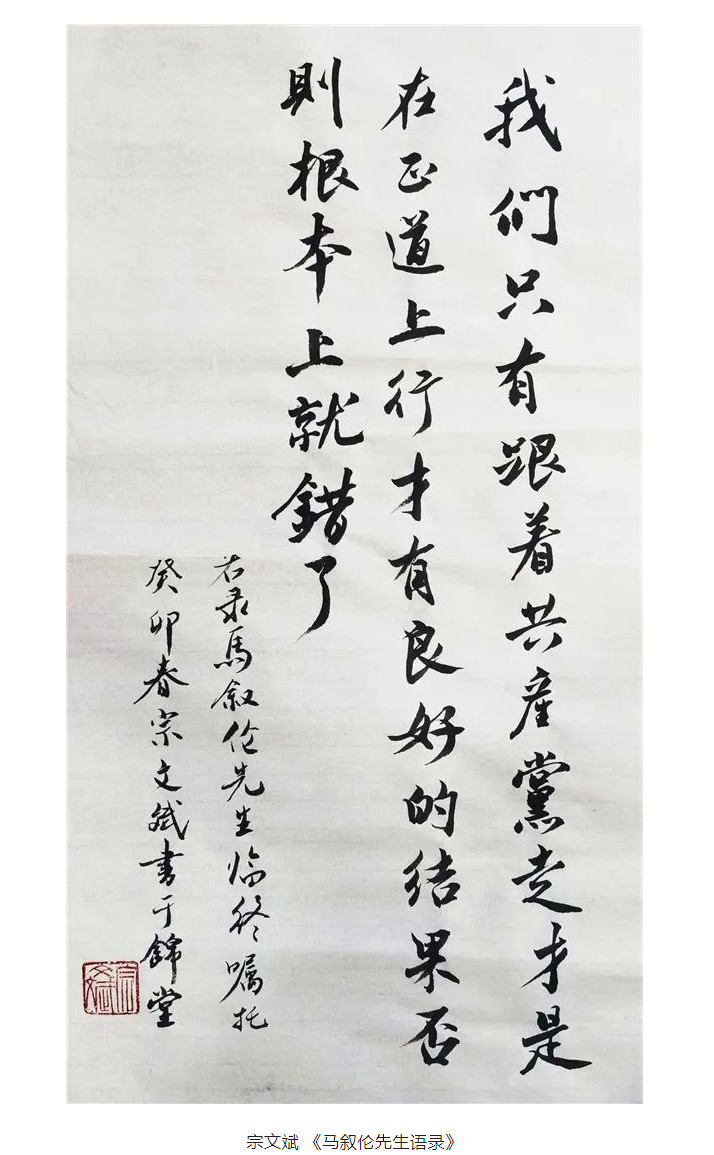 我们只有跟着共産黨走才是
在正道上行才有良好的结果否
則根本上就錯了
右录馬叙伦先生临终嘱托
癸卯春宗文斌書于錦堂
宗文斌 《马叙伦先生语录》